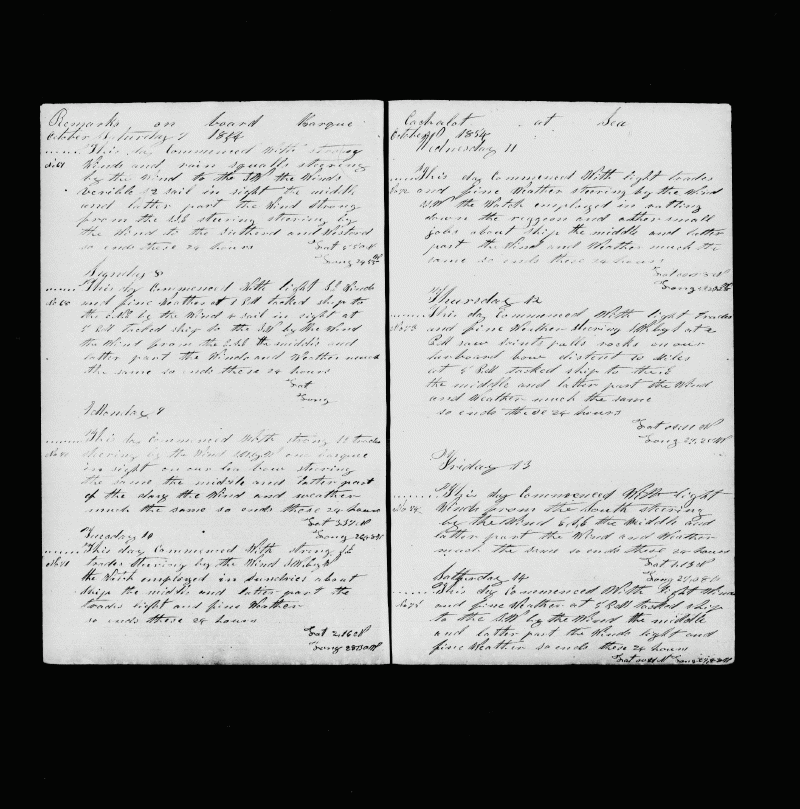 Remarks on board Barque
October Saturday 7 1854
This day Commenced With strong
Winds and rain squalls steering
by the Wind to the SW the Winds
verible 12 sail in sight the middle
and latter part the Wind strong
from the SE steering steering by
the Wind to the Suthend and Westord
so ends these 24 hours
Lat
Long
Sunday 8
This day Commenced With light Winds
and fine Weather at 1 PM tacked ship to
the by the Wind 4 sail in sight at
5 PM tacked ship to the SW by the Wind
the Wind from the the middle and
latter part the Winds and Weather much
the same so ends these 24 hours
Lat
Long
Monday 9
This day Commenced With strong trades
stering by the Wind one barque
in sight on our bow steering
the same the middle and latter part
of the day the Wind and weather
much the same so ends these 24 hours
Lat
Long
Tuesday 10
This day Commenced With strong
trades Steering by the Wind
the Watch employed in sundries about
ship the middle and latter part the
trades light and fine Weather
so ends these 24 hours
Lat 2.16 N
Long
Cachalot at Sea
October 1854
Wednesday 11
This day Commenced With light trades
and fine Weather steering by the Wind
SW the Watch employed in ratling
down the riggeen and other small
jobs about ship the middle and latter
part the Wind and Weather much the
same so ends these 24 hours
Lat
Long
Thursday 12
This day Commenced With light trades
and fine Weather Steering at 2
PM saw saints palls rocks on our
larboard bow distent 10 Miles
at 5 PM tacked ship to the E
the middle and latter part the Wind
and Weather much the same
so ends these 24 hours
Lat
Long
Friday 13
This day Commenced With light
Winds from the South stering
by the Wind the Middle and
latter part the Wind and Weather
much the same so ends these 24 hours
Lat
Long
Saturday 14
This day Commenced With light Winds
and fine Weather at 5 PM tacked ship
to the SW by the Wind the middle
and latter part the Winds light and
fine Weather so ends these 24 hours
Lat Long